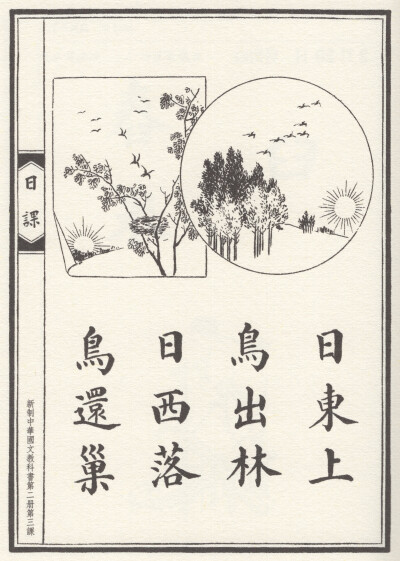 日東上
鳥出林
日西落
鳥還巢
日課
新制中華國文教科書第二册第三課